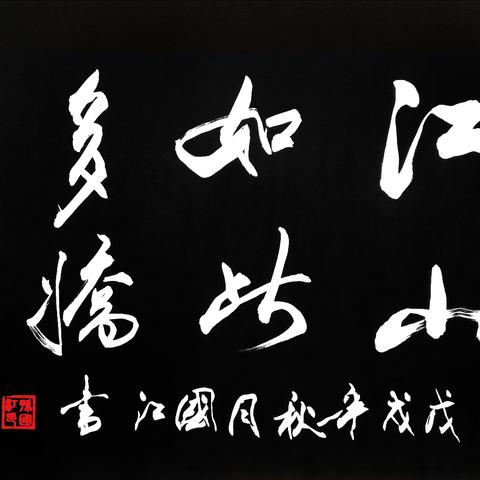 江山
如此
多嬌
戊戌年秋月國江書